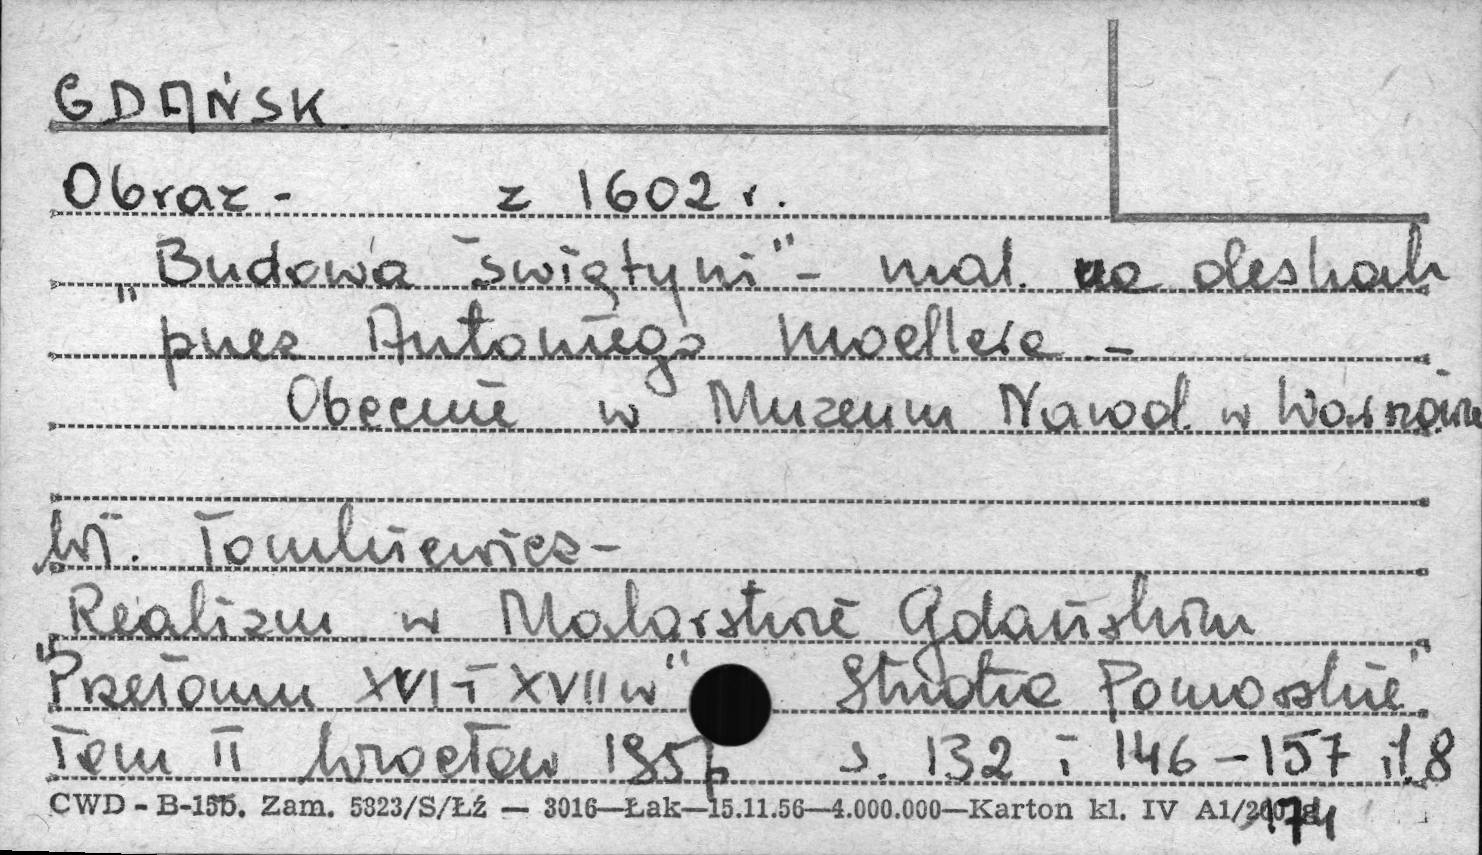 GDAŃSK.
Obraz - z 1602 r.
"Budowa świątyni" - mal. na deskach
przez Antoniego Moellera -
Obecnie w Muzeum Narod. w Warszawie
Wł. Tomkiewicz -
"Realizm w Malarstwie Gdańskim
Przełomu XVI i XVII w" Studia Pomorskie"
Tom II Wrocław 1957 s. 132 i 146-157 il. 8
CWD - B-155. Zam. 5823/S/Łź — 3016—Łak—15.11.56—4.000.000—Karton kl. IV A1/200 g
174